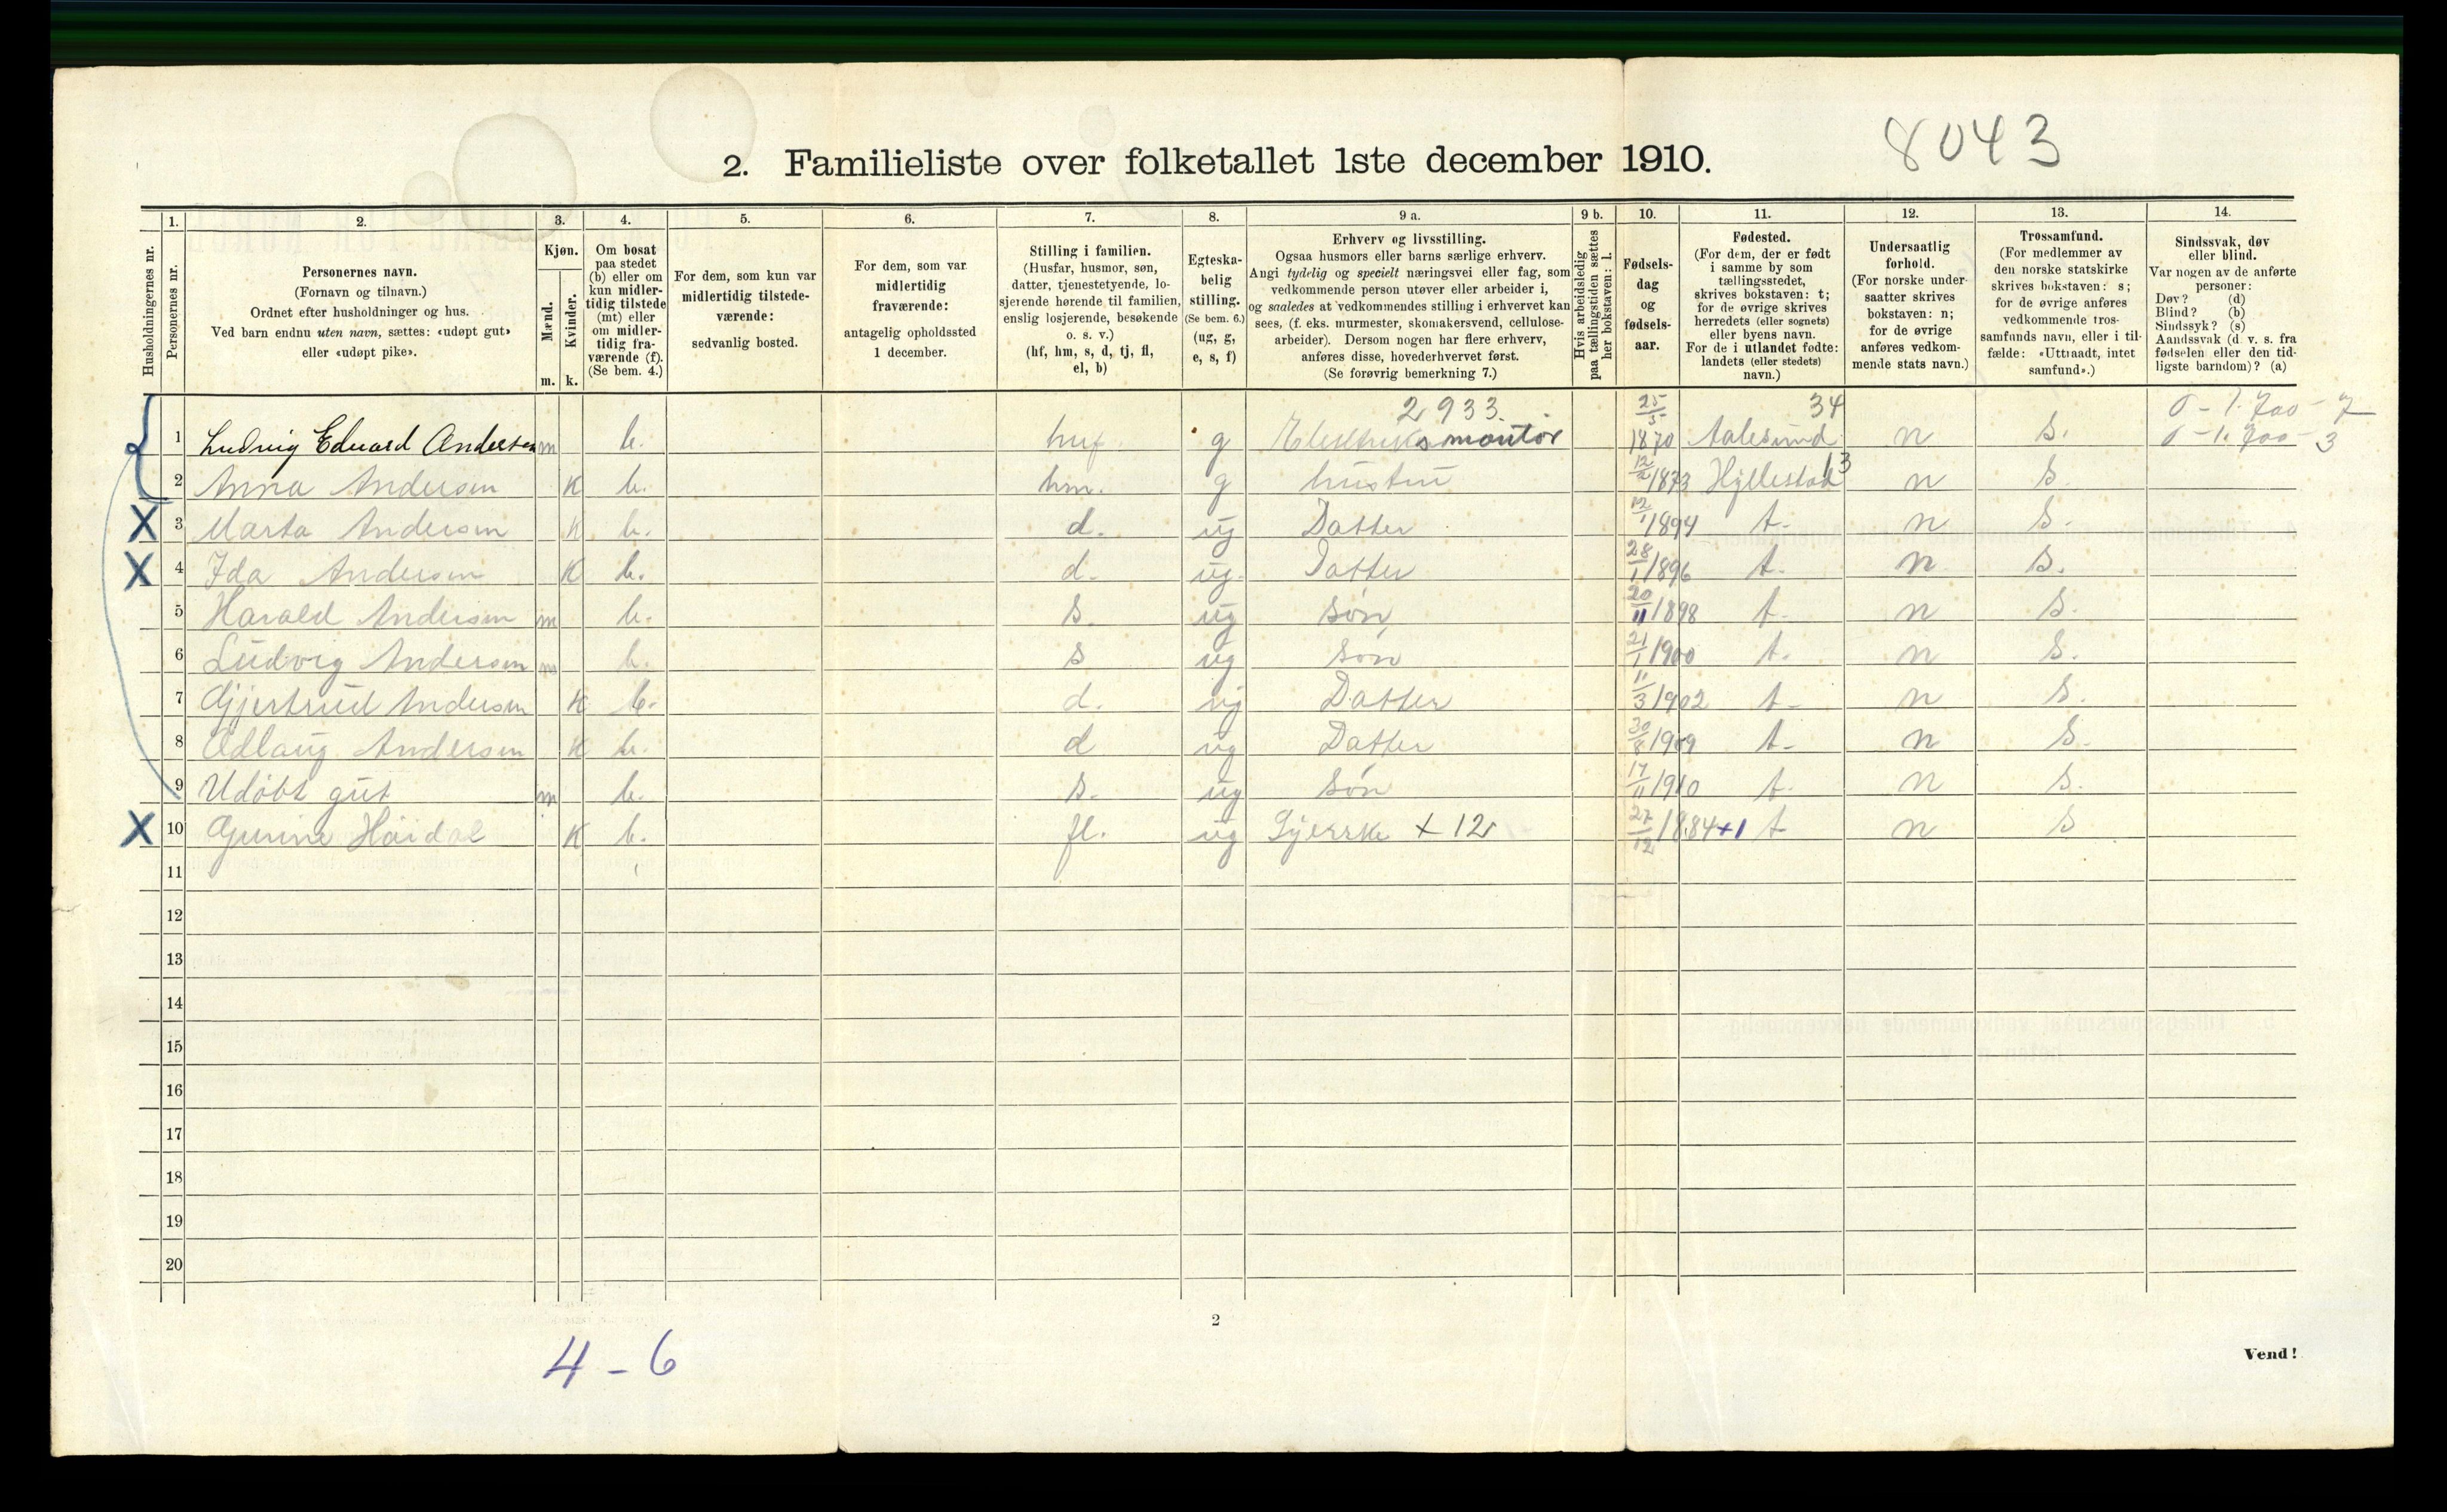 8043
2. Familieliste over folketallet 1ste december 1910.
Husholdningernes nr.
1.
Personernes nr.
2.
Personernes navn.
(Fornavn og tilnavn.)
Ordnet efter husholdninger og hus.
Ved barn endnu uten navn, sættes: «udøpt gut»
eller «udøpt pike».
3.
Kjøn.
Mænd.
Kvinder.
m. k.
4.
Om bosat
paa stedet
(b) eller om
kun midler-
tidig tilstede
(mt) eller
om midler-
tidig fra-
værende (f).
(Se bem. 4.)
5.
For dem, som kun var
midlertidig tilstede-
værende:
sedvanlig bosted.
6.
For dem, som var
midlertidig
fraværende:
antagelig opholdssted
1 december.
7.
Stilling i familien.
(Husfar, husmor, søn,
datter, tjenestetyende, lo-
sjerende hørende til familien,
enslig losjerende, besøkende
o. s. v.)
(hf, hm, s, d, tj, fl,
el, b)
8.
Egteska-
belig
stilling.
(Se bem. 6.)
(ug, g,
e, s, f)
9 a.
Erhverv og livsstilling.
Ogsaa husmors eller barns særlige erhverv.
Angi tydelig og specielt næringsvei eller fag, som
vedkommende person utøver eller arbeider i,
og saaledes at vedkommendes stilling i erhvervet kan
sees, (f. eks. murmester, skomakersvend, cellulose-
arbeider). Dersom nogen har flere erhverv,
anføres disse, hovederhvervet først.
(Se forøvrig bemerkning 7.)
9 b.
Hvis arbeidsledig
paa tællingstiden sættes
her bokstaven: l.
10.
Fødsels-
dag
og
fødsels-
aar.
11.
Fødested.
(For dem, der er født
i samme by som
tællingsstedet,
skrives bokstaven: t;
for de øvrige skrives
herredets (eller sognets)
eller byens navn.
For de i utlandet fødte:
landets (eller stedets)
navn.)
12.
Undersaatlig
forhold.
(For norske under-
saatter skrives
bokstaven: n;
for de øvrige
anføres vedkom-
mende stats navn.)
13.
Trossamfund.
(For medlemmer av
den norske statskirke
skrives bokstaven: s;
for de øvrige anføres
vedkommende tros-
samfunds navn, eller i til-
fælde: «Uttraadt, intet
samfund».)
14.
Sindssvak, døv
eller blind.
Var nogen av de anførte
personer:
Døv? (d)
Blind? (b)
Sindssyk? (s)
Aandssvak (d. v. s. fra
fødselen eller den tid-
ligste barndom)? (a)
2933. 34 0-1.700-7
1 Ludvig Eduard Andersen m b. huf g Elektriksmontör 25/5 1870 Aalesund n s. 0-1.700-3
2 Anna Andersen K b. hm. g hustru 12/2 1873 Hyllestad 13 n s.
3 Marta Andersen K b. d. ug Datter 12/1 1894 t. n s.
4 Ida Andersen K b. d. ug. Datter 28/1 1896 t. n s.
5 Harald Andersen m b. s. ug søn 20/11 1898 t. n s.
6 Ludvig Andersen m b. s ug søn 21/1 1900 t. n s.
7 Gjertrud Andersen K b. d. ug Datter 11/3 1902 t. n s.
8 Odlaug Andersen K b. d ug Datter 30/8 1909 t. n s.
9 Udöbt gut m b. s. ug søn 17/11 1910 t. n s.
10 Gunine Höidal K b. fl. ug Syerske + 12 27/12 1884 +1 t n s
11
12
13
14
15
16
17
18
19
20
2
4-6
Vend!